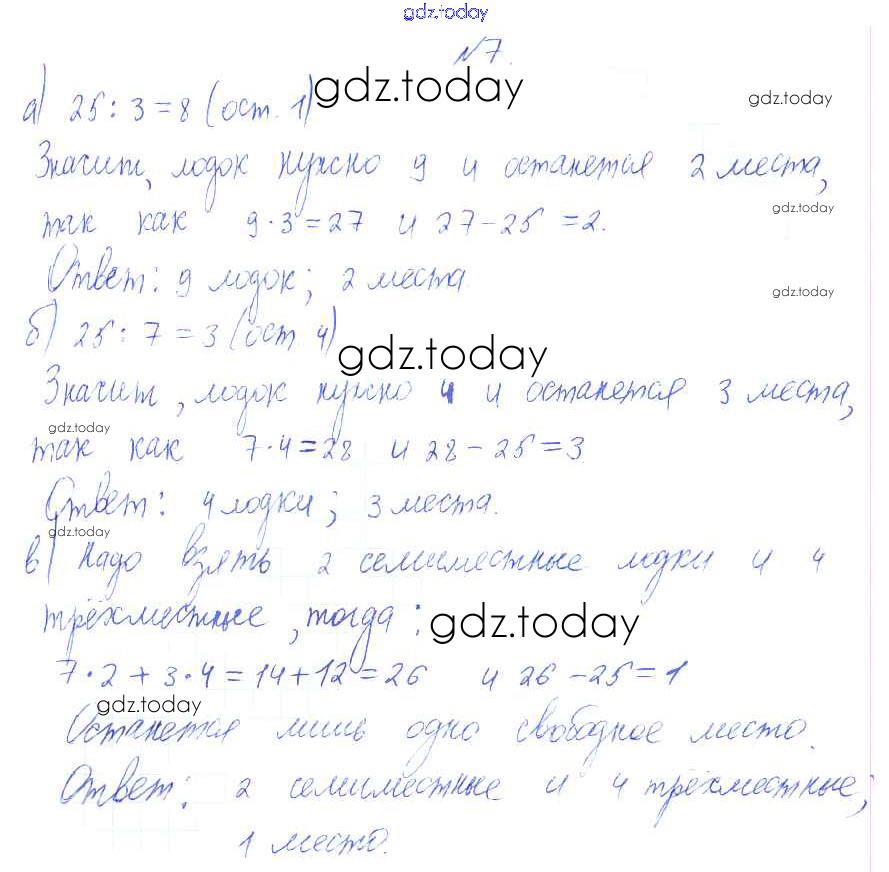 gdz.today
№7.
а) 25 : 3 = 8 (ост. 1) gdz.today
gdz.today
Значит, лодок нужно 9 и останется 2 места,
gdz.today
так как 9·3 = 27 и 27 - 25 = 2.
Ответ: 9 лодок; 2 места
gdz.today
б) 25 : 7 = 3 (ост 4)
gdz.today
Значит, лодок нужно 4 и останется 3 места,
gdz.today
так как 7·4 = 28 и 28 - 25 = 3
Ответ: 4 лодки; 3 места.
gdz.today
в) Надо взять 2 семиместные лодки и 4
трёхместные, тогда:
gdz.today
7·2 + 3·4 = 14 + 12 = 26 и 26 - 25 = 1
gdz.today
Останется лишь одно свободное место.
Ответ: 2 семиместные и 4 трёхместные;
1 место.